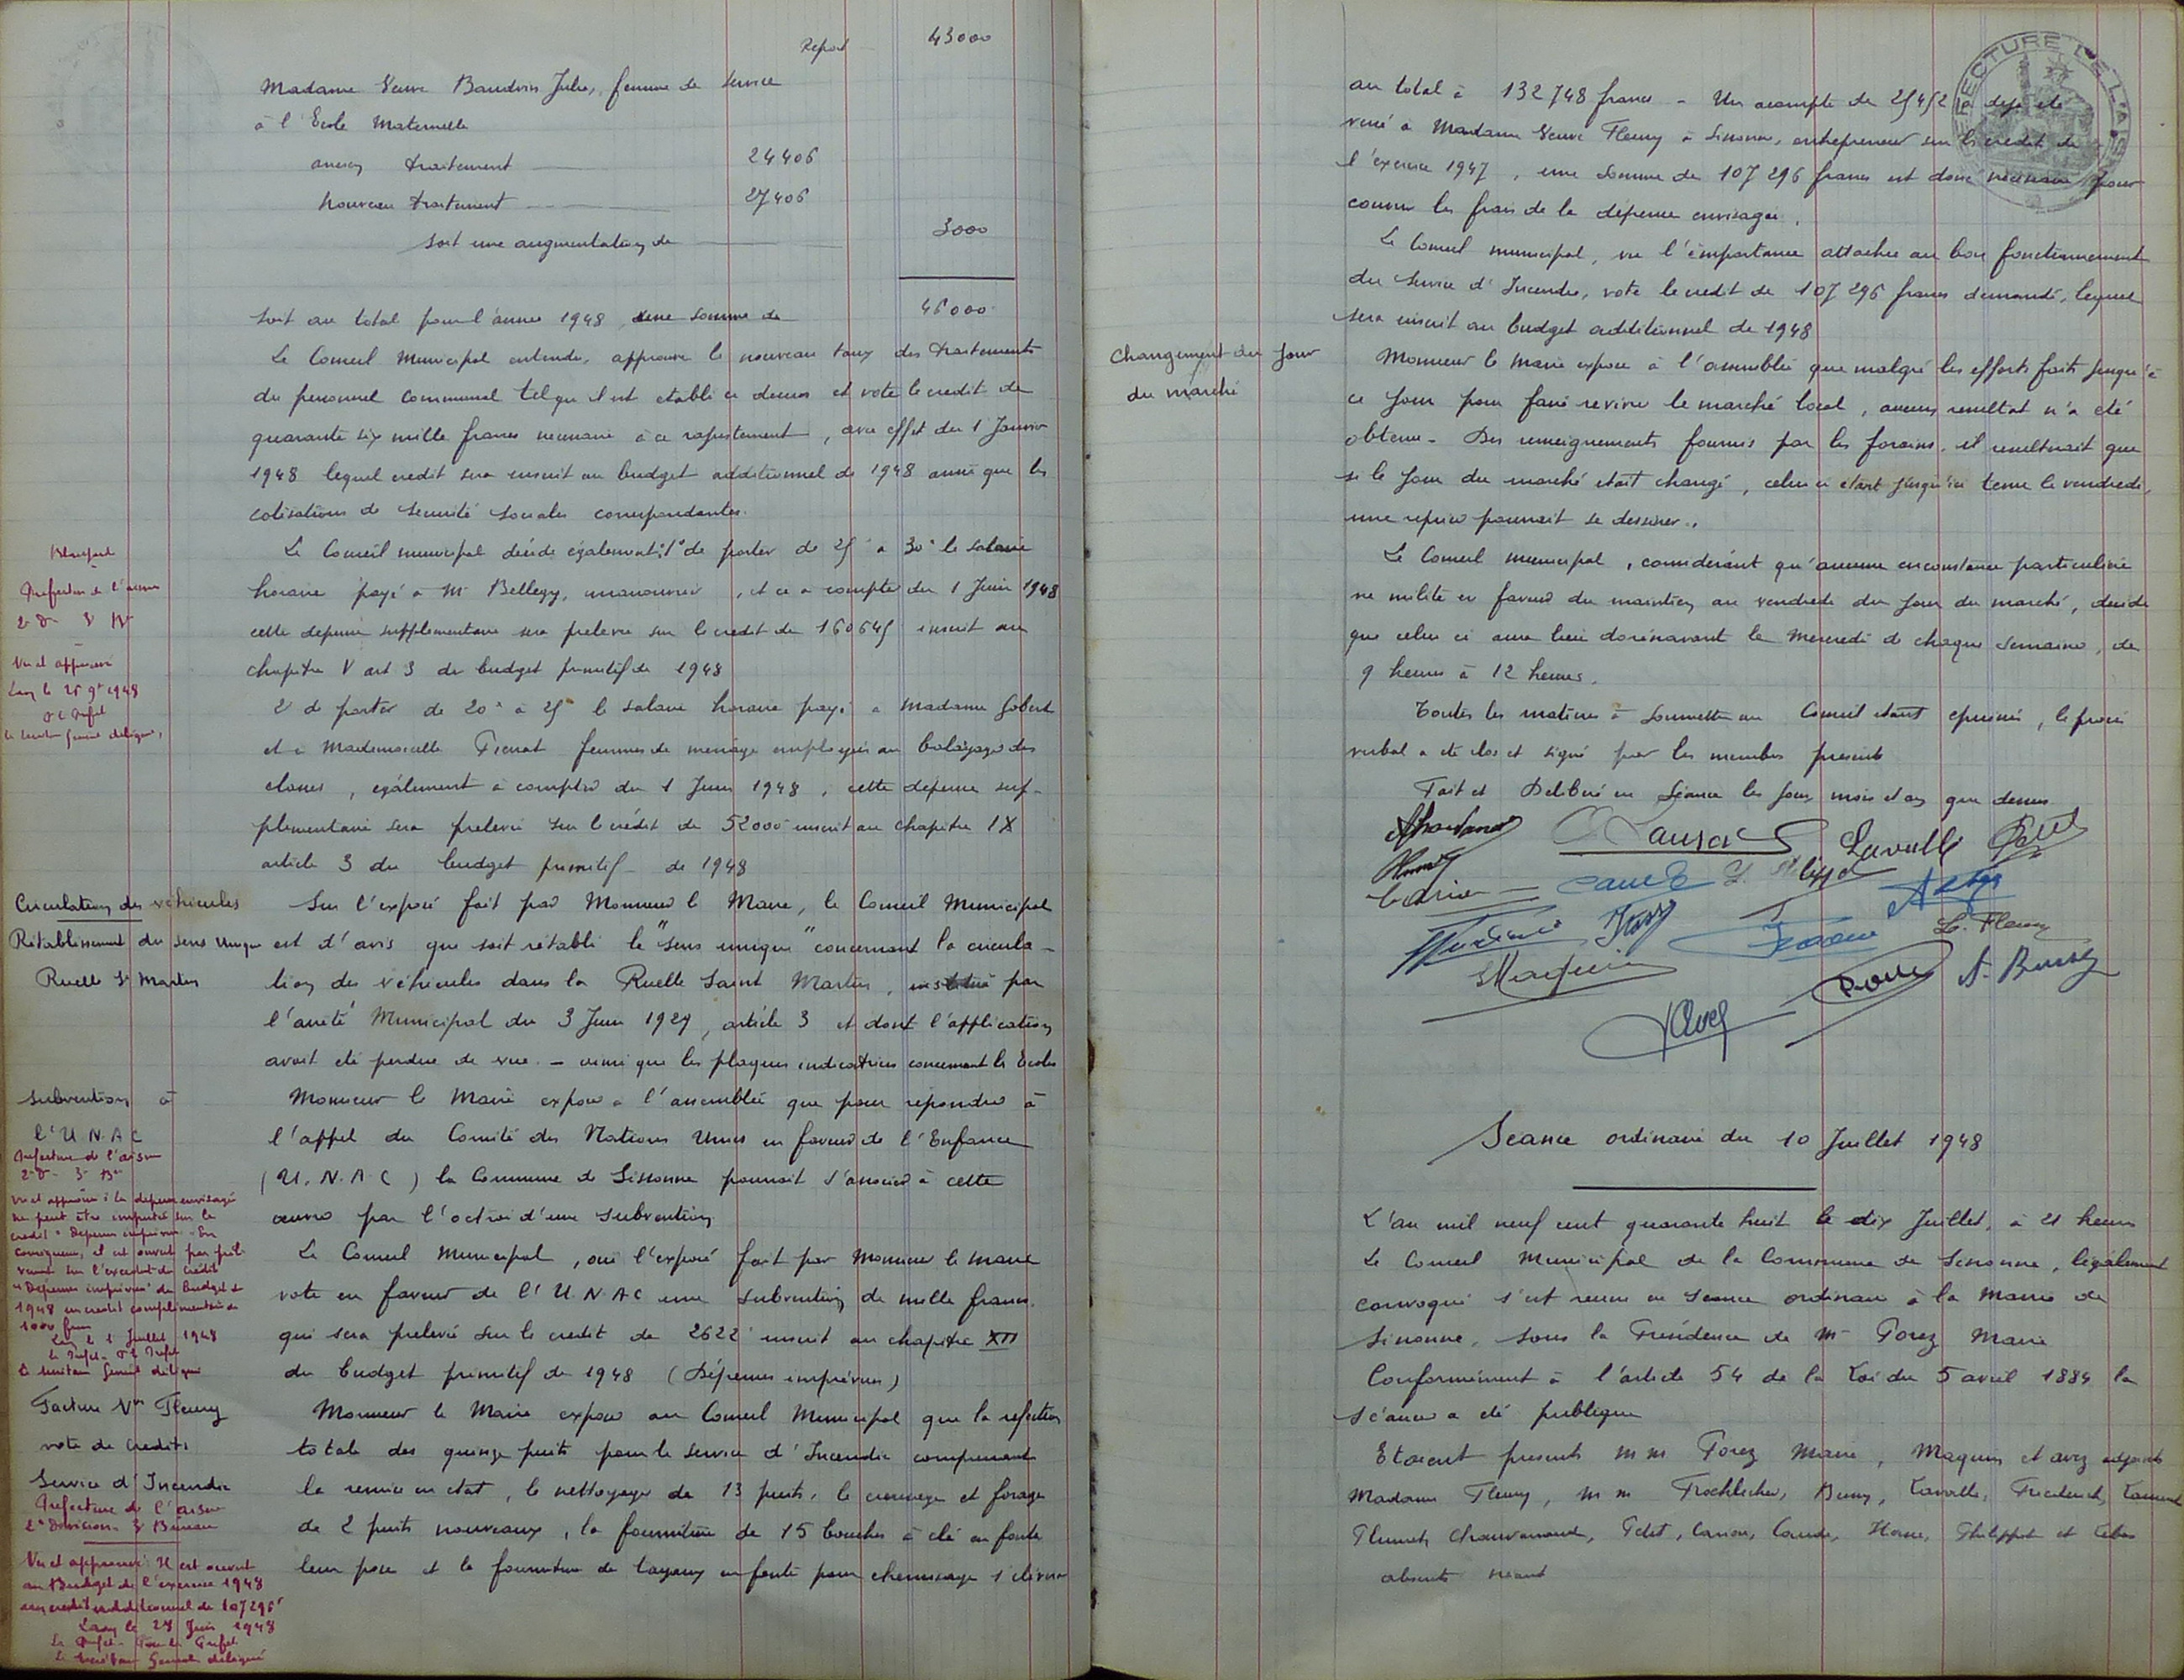 Report 43000
Madame Veuve Baudoin Julie, femme de service
à l'Ecole Maternelle
ancien traitement 24406
nouveau traitement 27406
soit une augmentation de 3000
soit au total pour l'année 1948 une somme de 46000
Le Conseil Municipal entendu, approuve le nouveau taux des traitements
du personnel communal tel qu'il est établi ci dessus et vote le crédit de
quarante six mille francs necessaire à ce rajustement, avec effet du 1 Janvier
1948 lequel credit sera inscrit au budget additionnel de 1948 ainsi que les
cotisations de Sécurité Sociales correspondantes.
Le Conseil municipal décide également : 1° de porter de 25 à 30 le salaire
horaire payé à Mr Bellegy, manouvrier, et ce à compter du 1 Juin 1948
cette dépense supplementaire sera prelevée sur le credit de 160645 inscrit au
chapitre V art 3 du budget primitif de 1948
2° de porter de 20 à 25 le salaire horaire payé à madame Gobert
et à Mademoiselle femmes de menage employées au balayage des
classes, également à compter du 1 Juin 1948, cette dépense sup-
plementaire sera prelevée sur le crédit de 52000 inscrit au chapitre IX
article 3 du budget primitif de 1948
Circulation des véhicules
Rétablissement du sens unique
Ruelle St Martin
Sur l'exposé fait par Monsieur le Maire, le Conseil Municipal
est d'avis que soit rétabli le "sens unique" concernant la circula-
tion des véhicules dans la Ruelle Saint Martin, institué par
l'arrêté Municipal du 3 Juin 1929, article 3 et dont l'application
avait été perdue de vue. - ainsi que les plaques indicatrices concernant les Ecoles
Subvention à
l'U.N.A.C
Monsieur le Maire expose à l'assemblée que pour répondre à
l'appel du Comité des Nations Unies en faveur de l'Enfance
(U.N.A.C) la Commune de Sissonne pourrait s'associer à cette
œuvre par l'octroi d'une subvention
Le Conseil Municipal, oui l'exposé fait par Monsieur le maire
vote en faveur de l'U.N.A.C une subvention de mille francs
qui sera prelevée sur le credit de 2622 inscrit au chapitre XII
du budget primitif de 1948 (Dépenses imprévues)
Facture Vve Fleury
vote de credits
Service d'Incendie
Monsieur le Maire expose au Conseil Municipal que la refection
totale des quinze puits pour le service d'Incendie comprenant
la remise en etat, le nettoyage de 13 puits, le creusage et forage
de 2 puits nouveaux, la fourniture de 15 bouches à clé en fonte
leur pose et la fourniture de tuyaux en fonte pour chemisage s'élève
Préfecture de l'Aisne
2e D 3e Bn
Vu et approuvé
Laon le 25 9e 1948
Le Secrétaire Général délégué,
Préfecture de l'Aisne
2e D 3e Bn
Vu et approuvé : la dépense envisagée
ne peut être imputée sur le
credit "Dépenses imprévues". En
conséquence, il est ouvert par prélè-
vement sur l'excédent du crédit
"Dépenses imprévues" du Budget de
1948 un credit complémentaire de
1000 francs
Laon le 1 Juillet 1948
Le Secrétaire Général délégué
Préfecture de l'Aisne
2e Division 3e Bureau
Vu et approuvé : Il est ouvert
au Budget de l'exercice 1948
un crédit additionnel de 107296f
Laon le 28 Juin 1948
Le Préfet - Pour le Préfet
Le Secrétaire Général délégué
PREFECTURE DE L'AISNE
au total à 132 748 francs - Un acompte de 25452 a deja été
versé à Madame Veuve Fleury à Sissonne, entrepreneur sur les credits de
l'exercice 1947, une somme de 107 296 francs est donc necessaire pour
couvrir les frais de la dépense envisagée.
Le Conseil municipal, vu l'importance attachée au bon fonctionnement
du Service d'Incendie, vote le credit de 107 296 francs demandé, lequel
sera inscrit au budget additionnel de 1948
Changement du jour
du marché
Monsieur le Maire expose à l'assemblée que malgré les efforts faits jusqu'à
ce jour pour faire revivre le marché local, aucun resultat n'a été
obtenu - Des renseignements fournis par les forains, il resulterait que
si le jour du marché était changé, celui ci étant jusqu'ici tenu le vendredi,
une reprise pourrait se dessiner.
Le Conseil municipal, considerant qu'aucune circonstance particulière
ne milite en faveur du maintien au vendredi du jour du marché, decide
que celui ci aura lieu dorénavant le Mercredi de chaque semaine, de
9 heures à 12 heures.
Toutes les matières à soumettre au Conseil étant epuisées, le procès
verbal a été clos et signé par les membres présents
Fait et Délibéré en Séance les jour, mois et an que dessus
Lavalle
L. Fleury
Séance ordinaire du 10 Juillet 1948
L'an mil neuf cent quarante huit le dix Juillet, à 21 heures
Le Conseil Municipal de la Commune de Sissonne, légalement
convoqué s'est réuni en séance ordinaire à la Mairie de
Sissonne, sous la Présidence de Mr Forez Maire
Conformément à l'article 54 de la Loi du 5 avril 1884 la
séance a été publique
Etaient presents MM Forez Maire, Maquin et Avez adjoints
Madame Fleury, MM Lavalle,
Chauvanard, Petit, Carion, Philippot et
absents néant